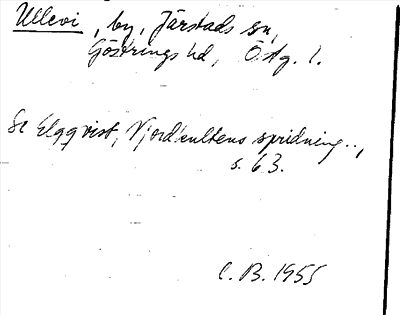 Ullevi, by, Järstads sn,
Göstrings hd, Östg. l.
Se Elgqvist, Njordkultens spridning..,
s. 63.
C.B. 1955